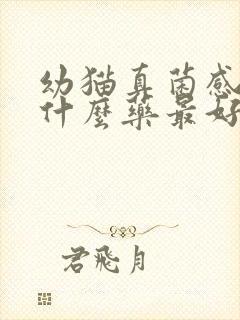 幼猫真菌感
什麼藥最好
君飛月